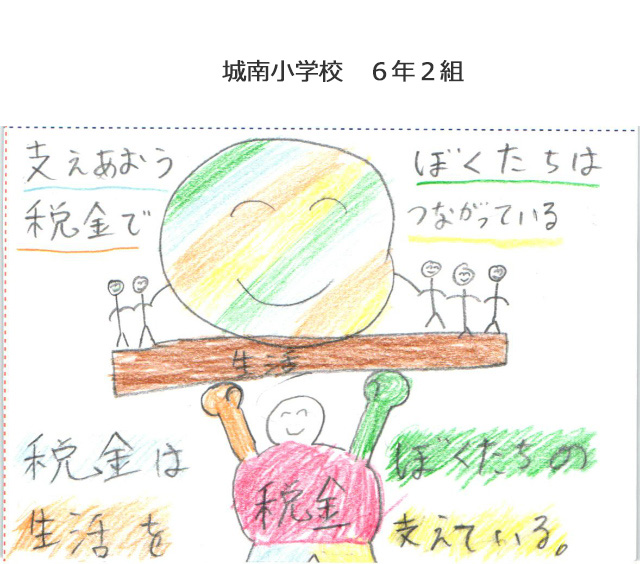 城南小学校　６年２組
支えあおう
税金で
ぼくたちは
つながっている
生活
税金
税金は
ぼくたちの
生活を
支えている。